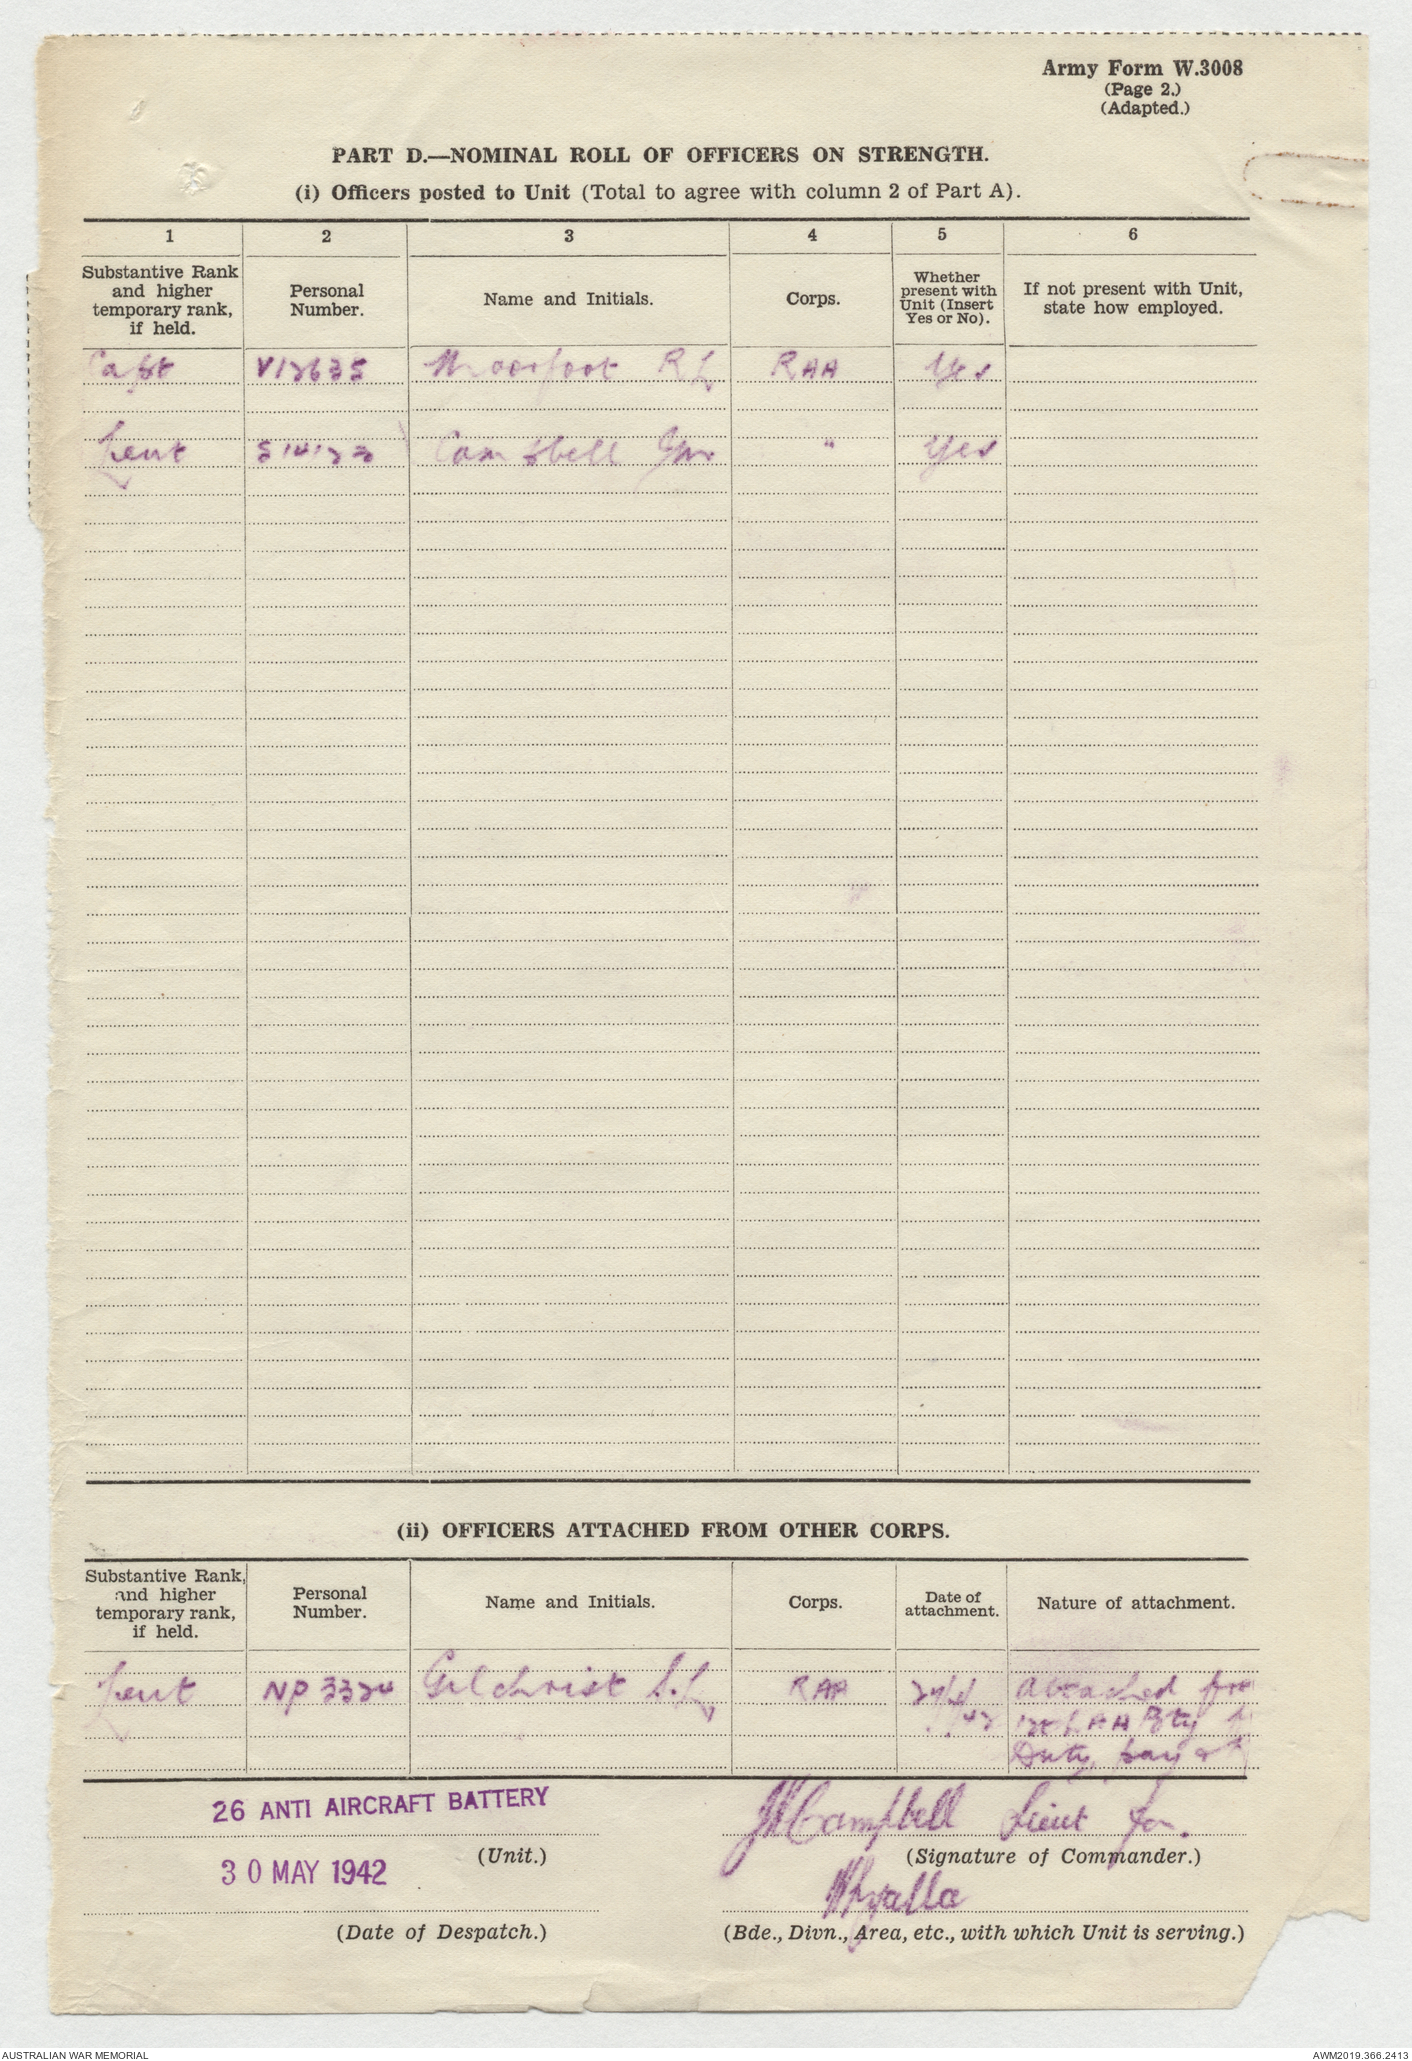 Army Form W.3008
(Page 2.)
(Adapted.)
PART D.—NOMINAL ROLL OF OFFICERS ON STRENGTH.
(i) Officers posted to Unit (Total to agree with column 2 of Part A).
1 2 3 4 5 6
Substantive Rank and higher temporary rank, if held. Personal Number. Name and Initials. Corps. Whether present with Unit (Insert Yes or No). If not present with Unit, state how employed.
Capt V12635 Moorfoot R L RAA Yes
Lieut Campbell " Yes
(ii) OFFICERS ATTACHED FROM OTHER CORPS.
Substantive Rank, and higher temporary rank, if held. Personal Number. Name and Initials. Corps. Date of attachment. Nature of attachment.
Lieut NP 3324 Gilchrist RAA attached
AA Bty
Duty, pay
26 ANTI AIRCRAFT BATTERY
Campbell Lieut for.
(Unit.)
(Signature of Commander.)
30 MAY 1942
Whyalla
(Date of Despatch.)
(Bde., Divn., Area, etc., with which Unit is serving.)
AUSTRALIAN WAR MEMORIAL
AWM2019.366.2413